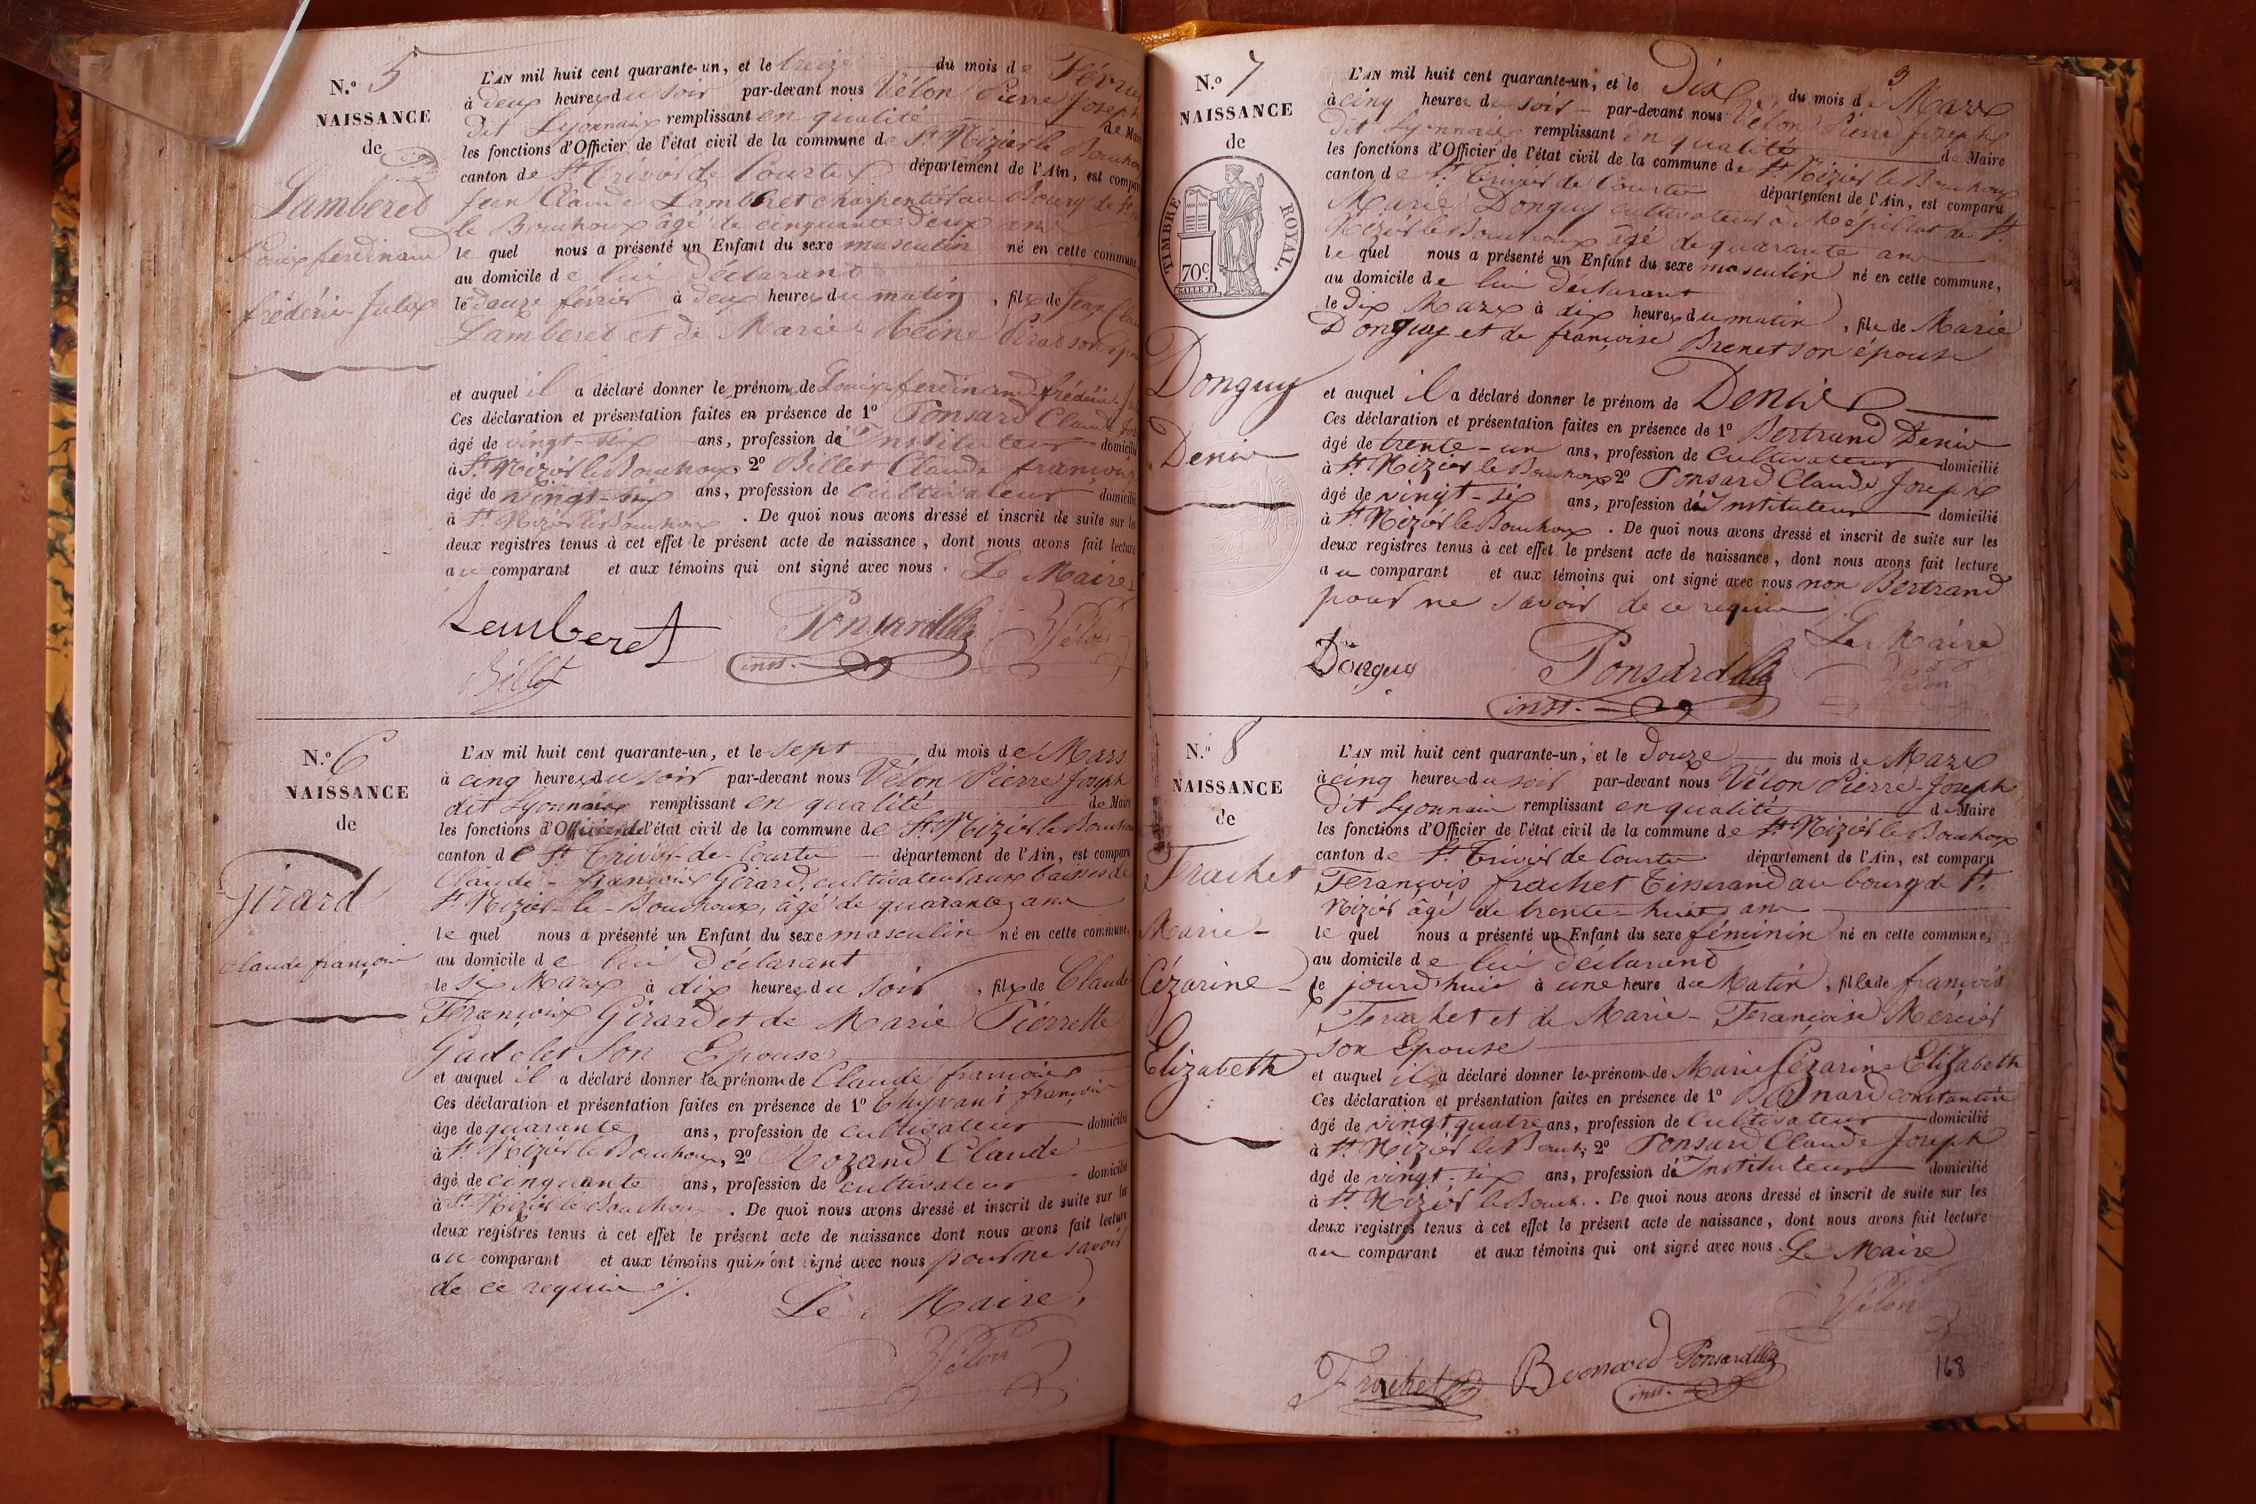 N.º 5
NAISSANCE
de
Lamberet
Louis ferdinand
frédéric Jules
L'AN mil huit cent quarante-un, et le treize du mois de Février
à deux heures du soir par-devant nous Vélon Pierre Joseph
dit Lyonnais remplissant en qualité de Maire
les fonctions d'Officier de l'état civil de la commune de St. Nizier le Bouchoux
canton de St. Trivier de Courtes département de l'Ain, est comparu
Jean Claude Lamberet charpentier au Bourg de St. Nizier
le Bouhoux âgé de cinquante deux ans
le quel nous a présenté un Enfant du sexe masculin né en cette commune,
au domicile de lui déclarant
le douze février à deux heures du matin, fils de Jean Claude
Lamberet et de Marie Reine Pirat son épouse
et auquel il a déclaré donner le prénom de Louis ferdinand frédéric
Ces déclaration et présentation faites en présence de 1º Ponsard Claude
âgé de vingt-six ans, profession d'Instituteur domicilié
à St. Nizier le Bouchoux 2º Billet Claude françois
âgé de vingt-six ans, profession de cultivateur domicilié
à St. Nizier le Bouchoux. De quoi nous avons dressé et inscrit de suite sur les
deux registres tenus à cet effet le présent acte de naissance, dont nous avons fait lecture
au comparant et aux témoins qui ont signé avec nous. Le Maire
Lamberet Ponsard Vélon
inst.
Billet
N.º 6
NAISSANCE
de
Girard
Claude françois
L'AN mil huit cent quarante-un, et le sept du mois de Mars
à cinq heures du soir par-devant nous Vélon Pierre Joseph
dit Lyonnais remplissant en qualité de Maire
les fonctions d'Officier de l'état civil de la commune de St. Nizier le Bouchoux
canton de St. Trivier-de-Courtes département de l'Ain, est comparu
Claude-françois Girard, cultivateur aux baisses de
St. Nizier-le-Bouchoux, âgé de quarante ans
le quel nous a présenté un Enfant du sexe masculin né en cette commune,
au domicile de lui déclarant
le six Mars à dix heures du soir, fils de Claude
François Girard et de Marie Pierrette
Gadolet Son Epouse
et auquel il a déclaré donner les prénoms de Claude françois
Ces déclaration et présentation faites en présence de 1º Thyvant françois
âge de quarante ans, profession de cultivateur domicilié
à St. Nizier le Bouchoux, 2º Morand Claude
âgé de cinquante ans, profession de cultivateur domicilié
à St. Nizier le Bouchoux. De quoi nous avons dressé et inscrit de suite sur les
deux registres tenus à cet effet le présent acte de naissance dont nous avons fait lecture
au comparant et aux témoins qui n'ont signé avec nous pour ne savoir
de ce requis ./.
Le Maire,
Vélon
9
N.º 7
NAISSANCE
de
TIMBRE ROYAL.
70 c.
Donguy
Denis
L'AN mil huit cent quarante-un, et le Dix du mois de Mars
à cinq heures du soir par-devant nous Vélon Pierre Joseph
dit Lyonnais remplissant en qualité de Maire
les fonctions d'Officier de l'état civil de la commune de St. Nizier le Bouchoux
canton de St. Trivier de Courtes département de l'Ain, est comparu
Marie Donguy cultivateur à Mépillat de St.
Nizier le Bouchoux âgé de quarante ans
le quel nous a présenté un Enfant du sexe masculin né en cette commune,
au domicile de lui déclarant
le dix Mars à dix heures du matin, fils de Marie
Donguy et de françoise Brenet son épouse
et auquel il a déclaré donner le prénom de Denis
Ces déclaration et présentation faites en présence de 1º Bertrand Denis
âgé de trente-un ans, profession de Cultivateur domicilié
à St. Nizier le Bouchoux 2º Ponsard Claude Joseph
âgé de vingt-six ans, profession d'Instituteur domicilié
à St. Nizier le Bouchoux. De quoi nous avons dressé et inscrit de suite sur les
deux registres tenus à cet effet le présent acte de naissance, dont nous avons fait lecture
au comparant et aux témoins qui ont signé avec nous non Bertrand
pour ne savoir de ce requis
Le Maire
Donguy Ponsard Vélon
inst.
N.º 8
NAISSANCE
de
Frachet
Marie-
Cézarine-
Elizabeth
L'AN mil huit cent quarante-un, et le Douze du mois de Mars
à cinq heures du soir par-devant nous Vélon Pierre-Joseph
dit Lyonnais remplissant en qualité de Maire
les fonctions d'Officier de l'état civil de la commune de St. Nizier le Bouchoux
canton de St. Trivier de Courtes département de l'Ain, est comparu
François frachet Tisserand au bourg de St.
Nizier âgé de trente-huit ans
le quel nous a présenté un Enfant du sexe féminin né en cette commune,
au domicile de lui déclarant
le jourd'hui à une heure du Matin, fille de françois
Frachet et de Marie-Françoise Mercier
son Epouse
et auquel il a déclaré donner les prénoms de Marie Cézarine Elizabeth
Ces déclaration et présentation faites en présence de 1º Bernard constantin
âgé de vingt quatre ans, profession de Cultivateur domicilié
à St. Nizier le Bouch, 2º Ponsard Claude Joseph
âgé de vingt-six ans, profession d'Instituteur domicilié
à St. Nizier le Bouch. De quoi nous avons dressé et inscrit de suite sur les
deux registres tenus à cet effet le présent acte de naissance, dont nous avons fait lecture
au comparant et aux témoins qui ont signé avec nous. Le Maire
Vélon
Frachet Bernard Ponsard
inst.
168